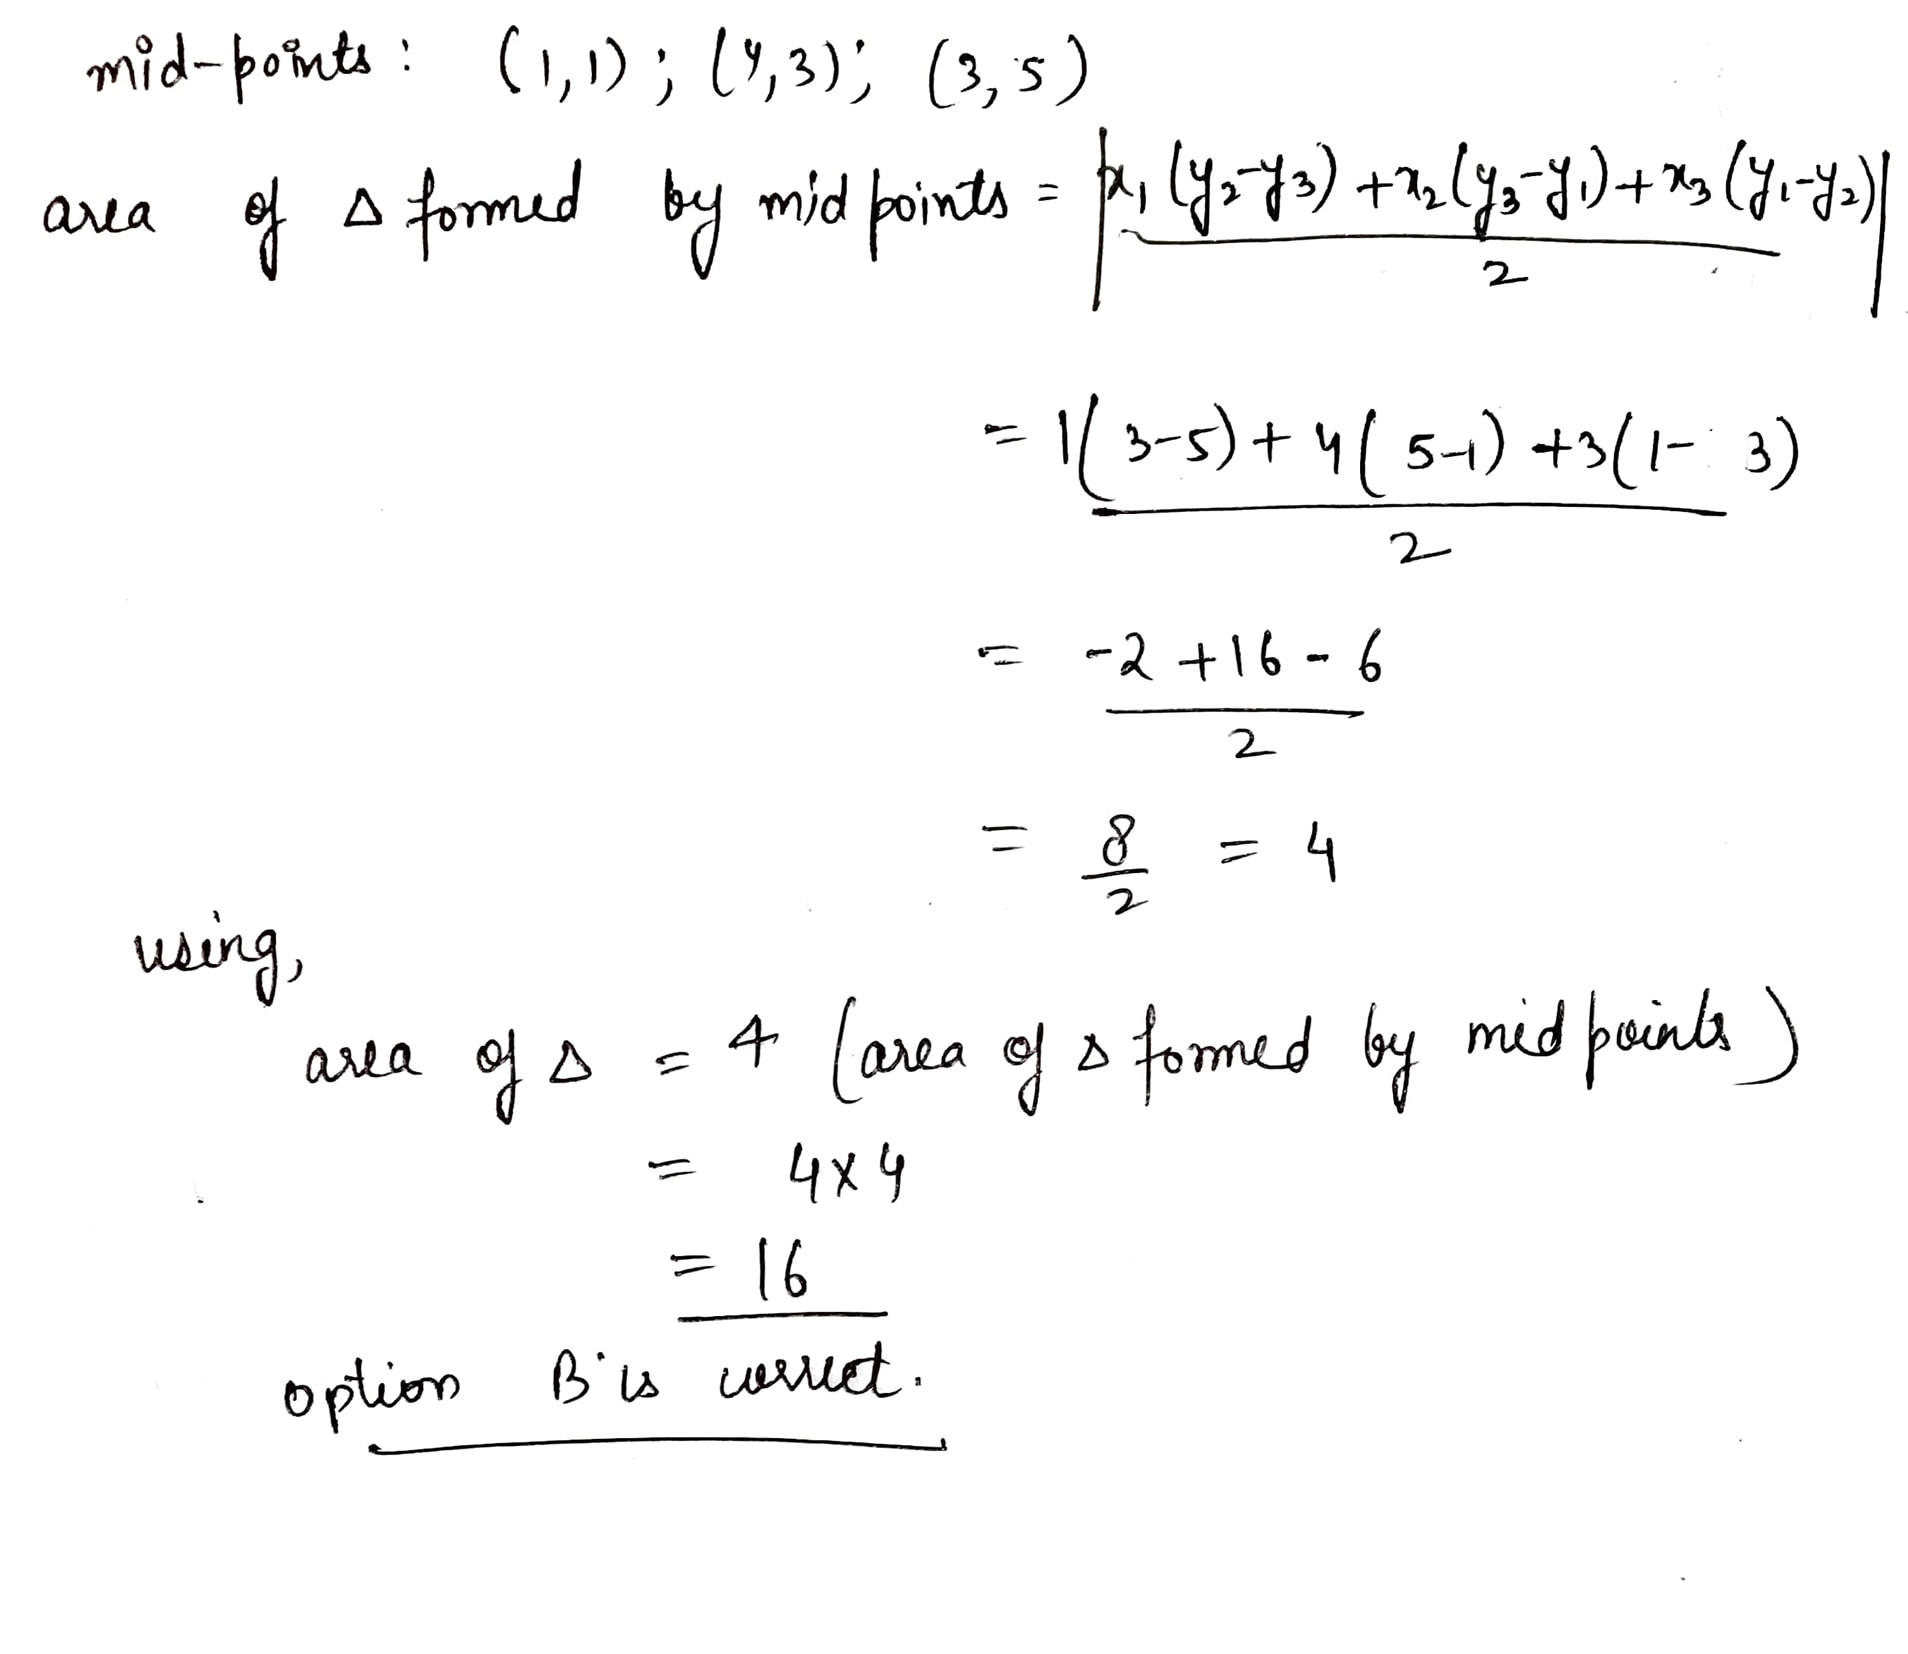 mid-points: (1,1); (4,3); (3,5)
area of Δ formed by midpoints = |x₁(y₂-y₃)+x₂(y₃-y₁)+x₃(y₁-y₂)|
2
= 1(3-5)+4(5-1)+3(1-3)
2
= -2+16-6
2
= 8/2 = 4
using,
area of Δ = 4 (area of Δ formed by midpoints)
= 4×4
= 16
option B is correct.